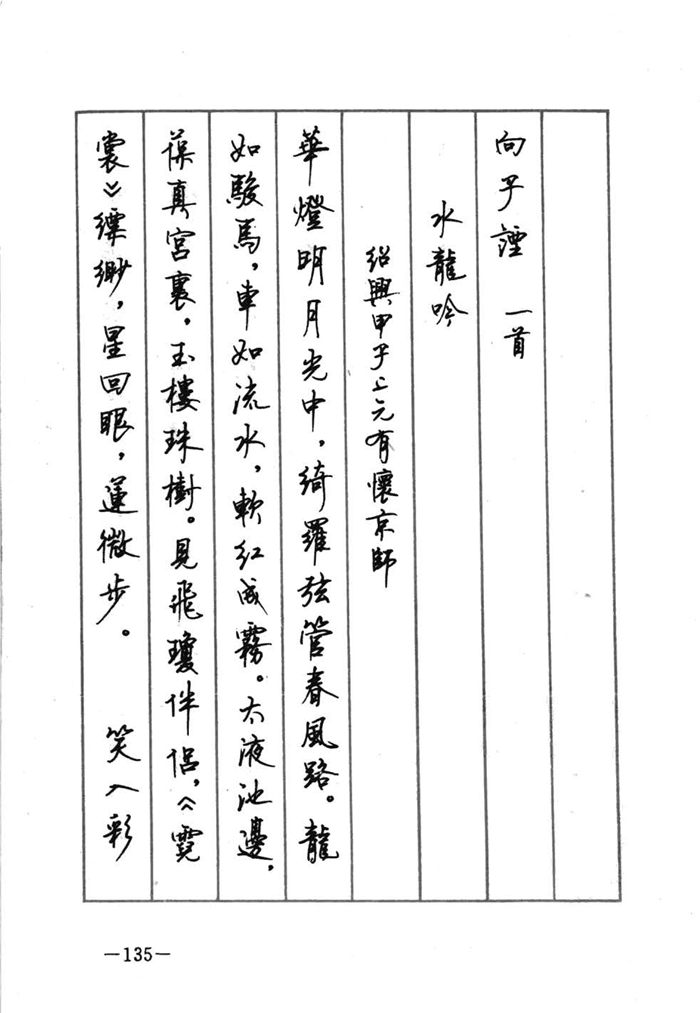 向子諲 一首
水龍吟
紹興甲子上元有懷京師
華燈明月光中，綺羅弦管春風路。龍
如駿馬，車如流水，軟紅成霧。太液池邊，
葆真宮裏，玉樓珠樹。見飛瓊伴侣，《霓
裳》縹緲，星回眼，蓮微步。 笑入彩
—135—